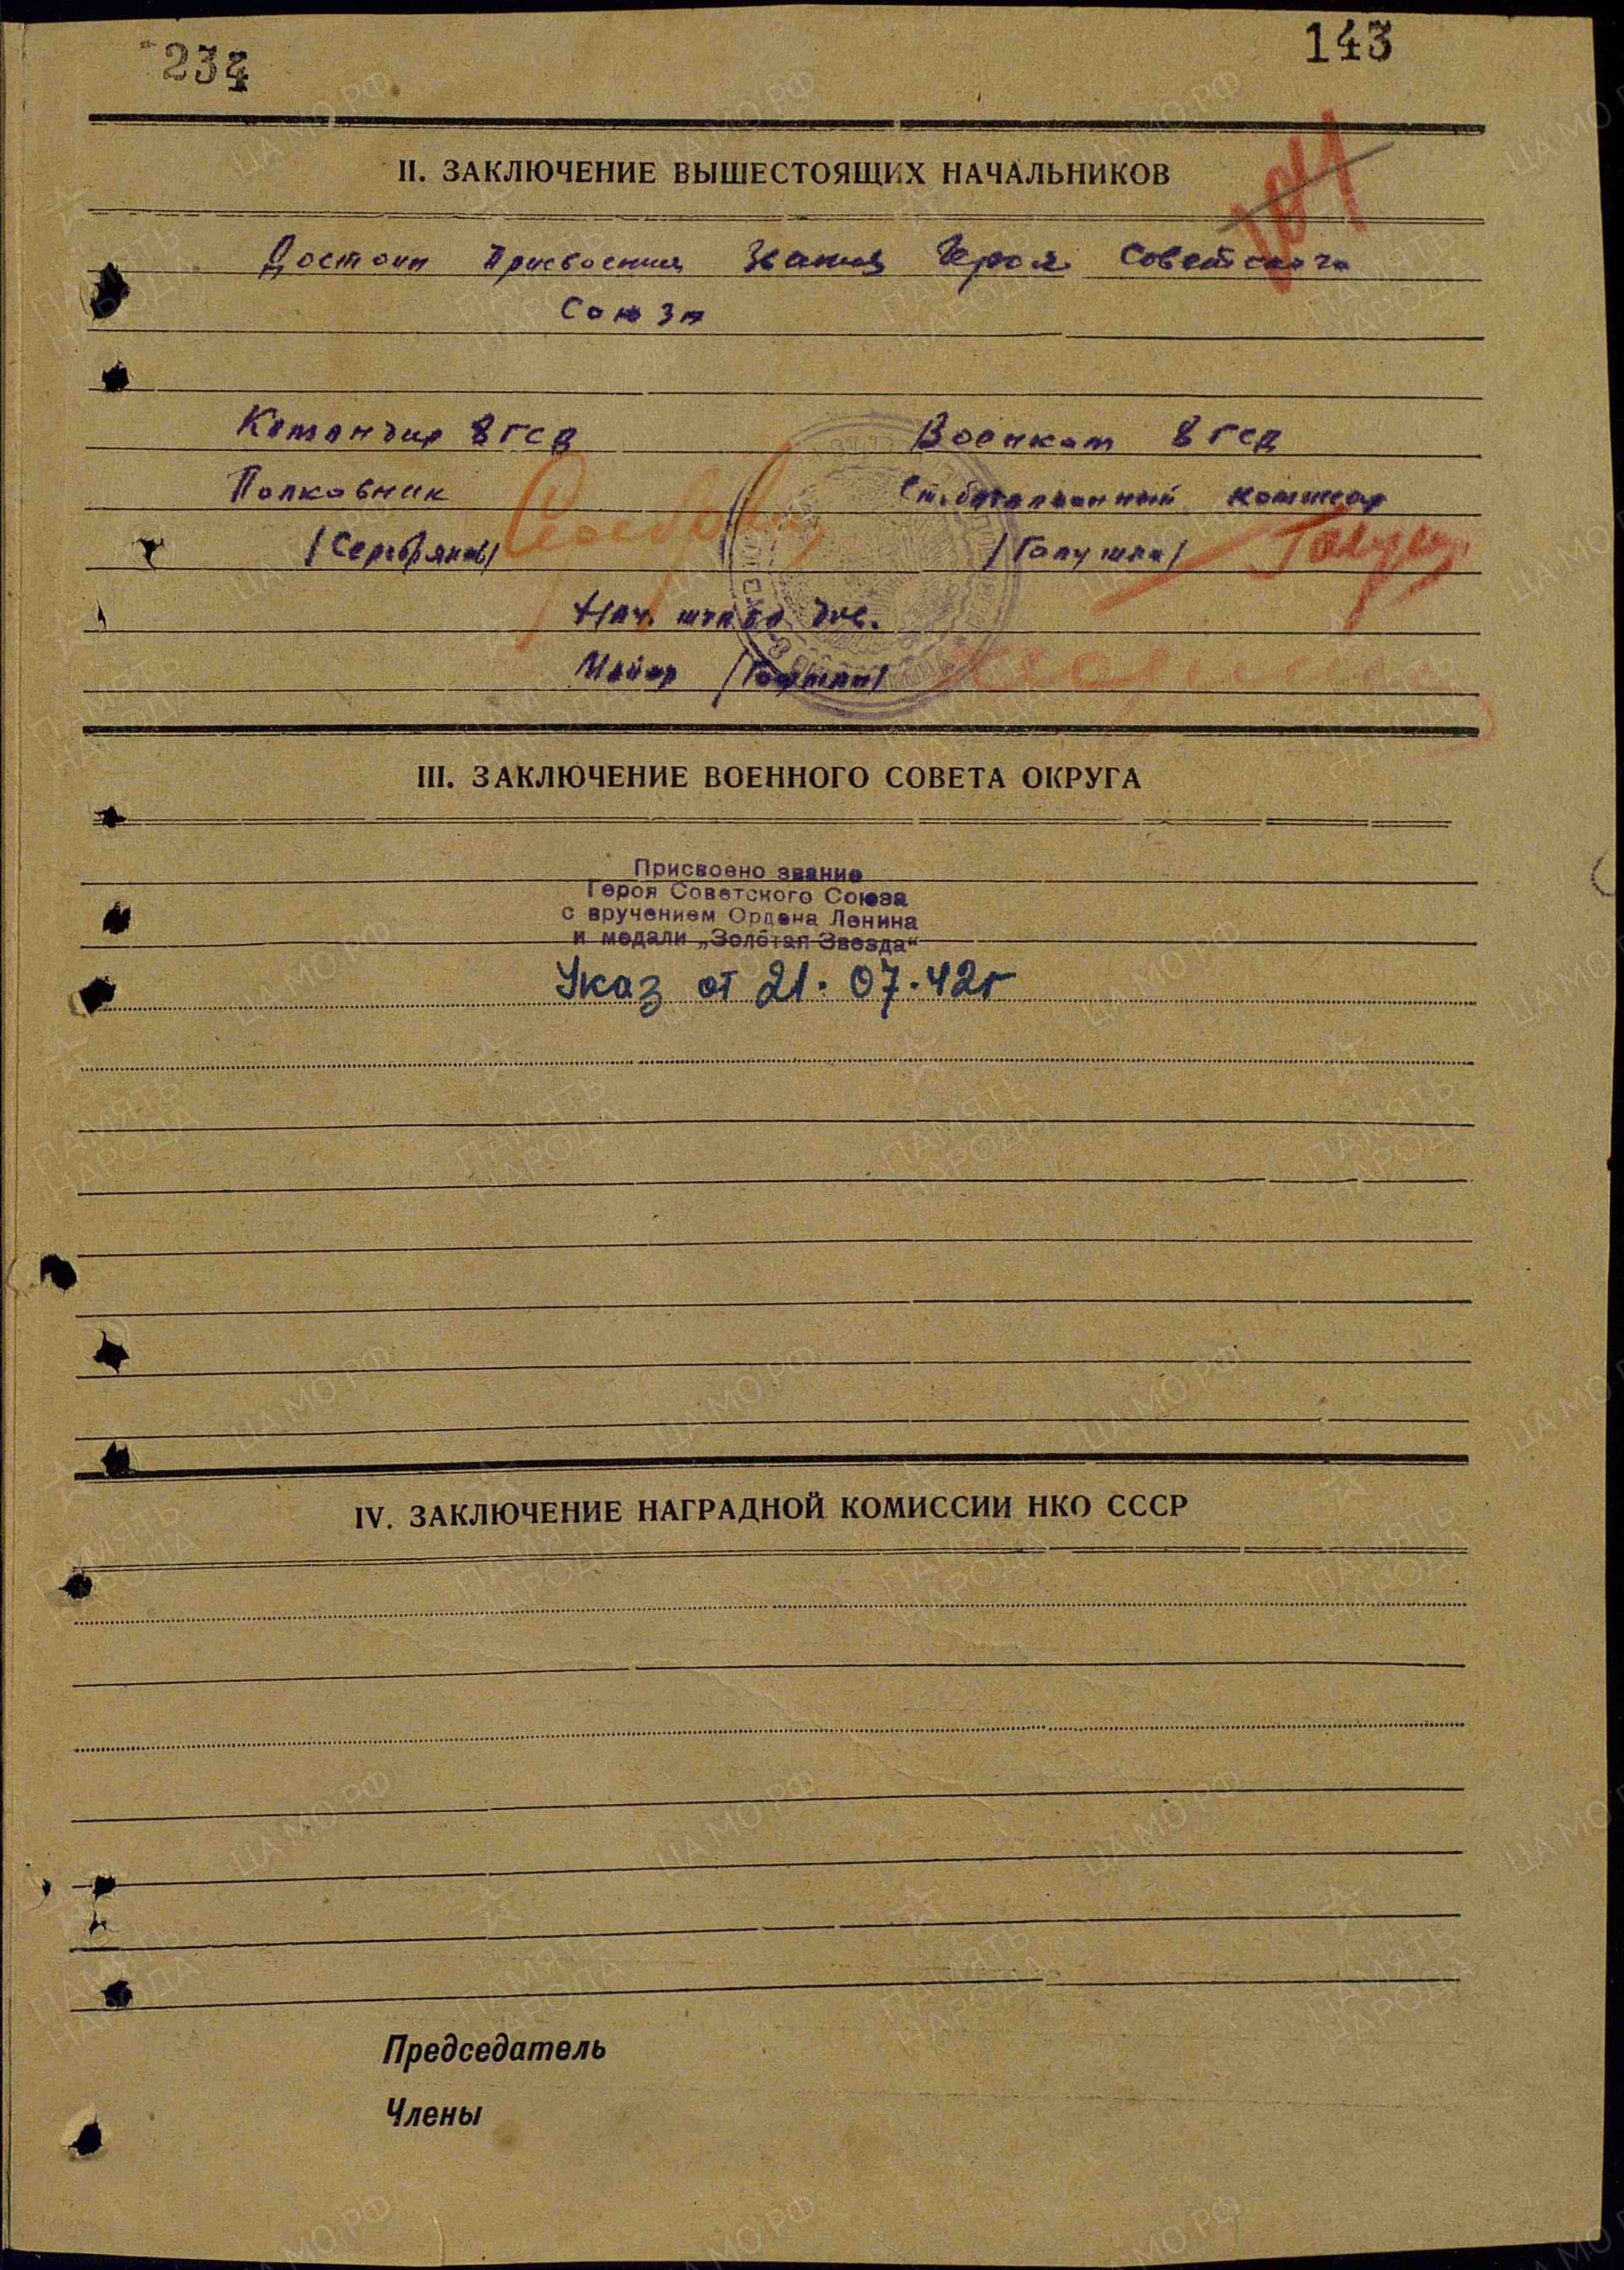 234
143
II. ЗАКЛЮЧЕНИЕ ВЫШЕСТОЯЩИХ НАЧАЛЬНИКОВ
Достоин присвоения звания Героя Советского
Союза
Командир 8 гсд Военком 8 гсд
Полковник Ст. батальонный комиссар
/Серебряков/ /Галушка/
Нач. штаба див.
Майор
III. ЗАКЛЮЧЕНИЕ ВОЕННОГО СОВЕТА ОКРУГА
Присвоено звание
Героя Советского Союза
с вручением Ордена Ленина
и медали „Золотая Звезда“
Указ от 21.07.42г
IV. ЗАКЛЮЧЕНИЕ НАГРАДНОЙ КОМИССИИ НКО СССР
Председатель
Члены
ЦА МО РФ
ПАМЯТЬ
НАРОДА